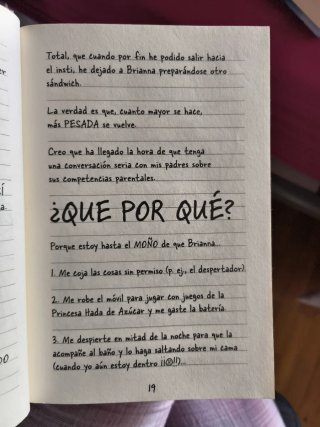 Total, que cuando por fin he podido salir hacia
el insti, he dejado a Brianna preparándose otro
sándwich.
La verdad es que, cuanto mayor se hace,
más PESADA se vuelve.
Creo que ha llegado la hora de que tenga
una conversación seria con mis padres sobre
sus competencias parentales.
¿QUE POR QUÉ?
Porque estoy hasta el MOÑO de que Brianna...
1. Me coja las cosas sin permiso (p. ej., el despertador).
2. Me robe el móvil para jugar con juegos de la
Princesa Hada de Azúcar y me gaste la batería.
3. Me despierte en mitad de la noche para que la
acompañe al baño y lo haga saltando sobre mi cama
(cuando yo aún estoy dentro ¡¡☹!!)...
19